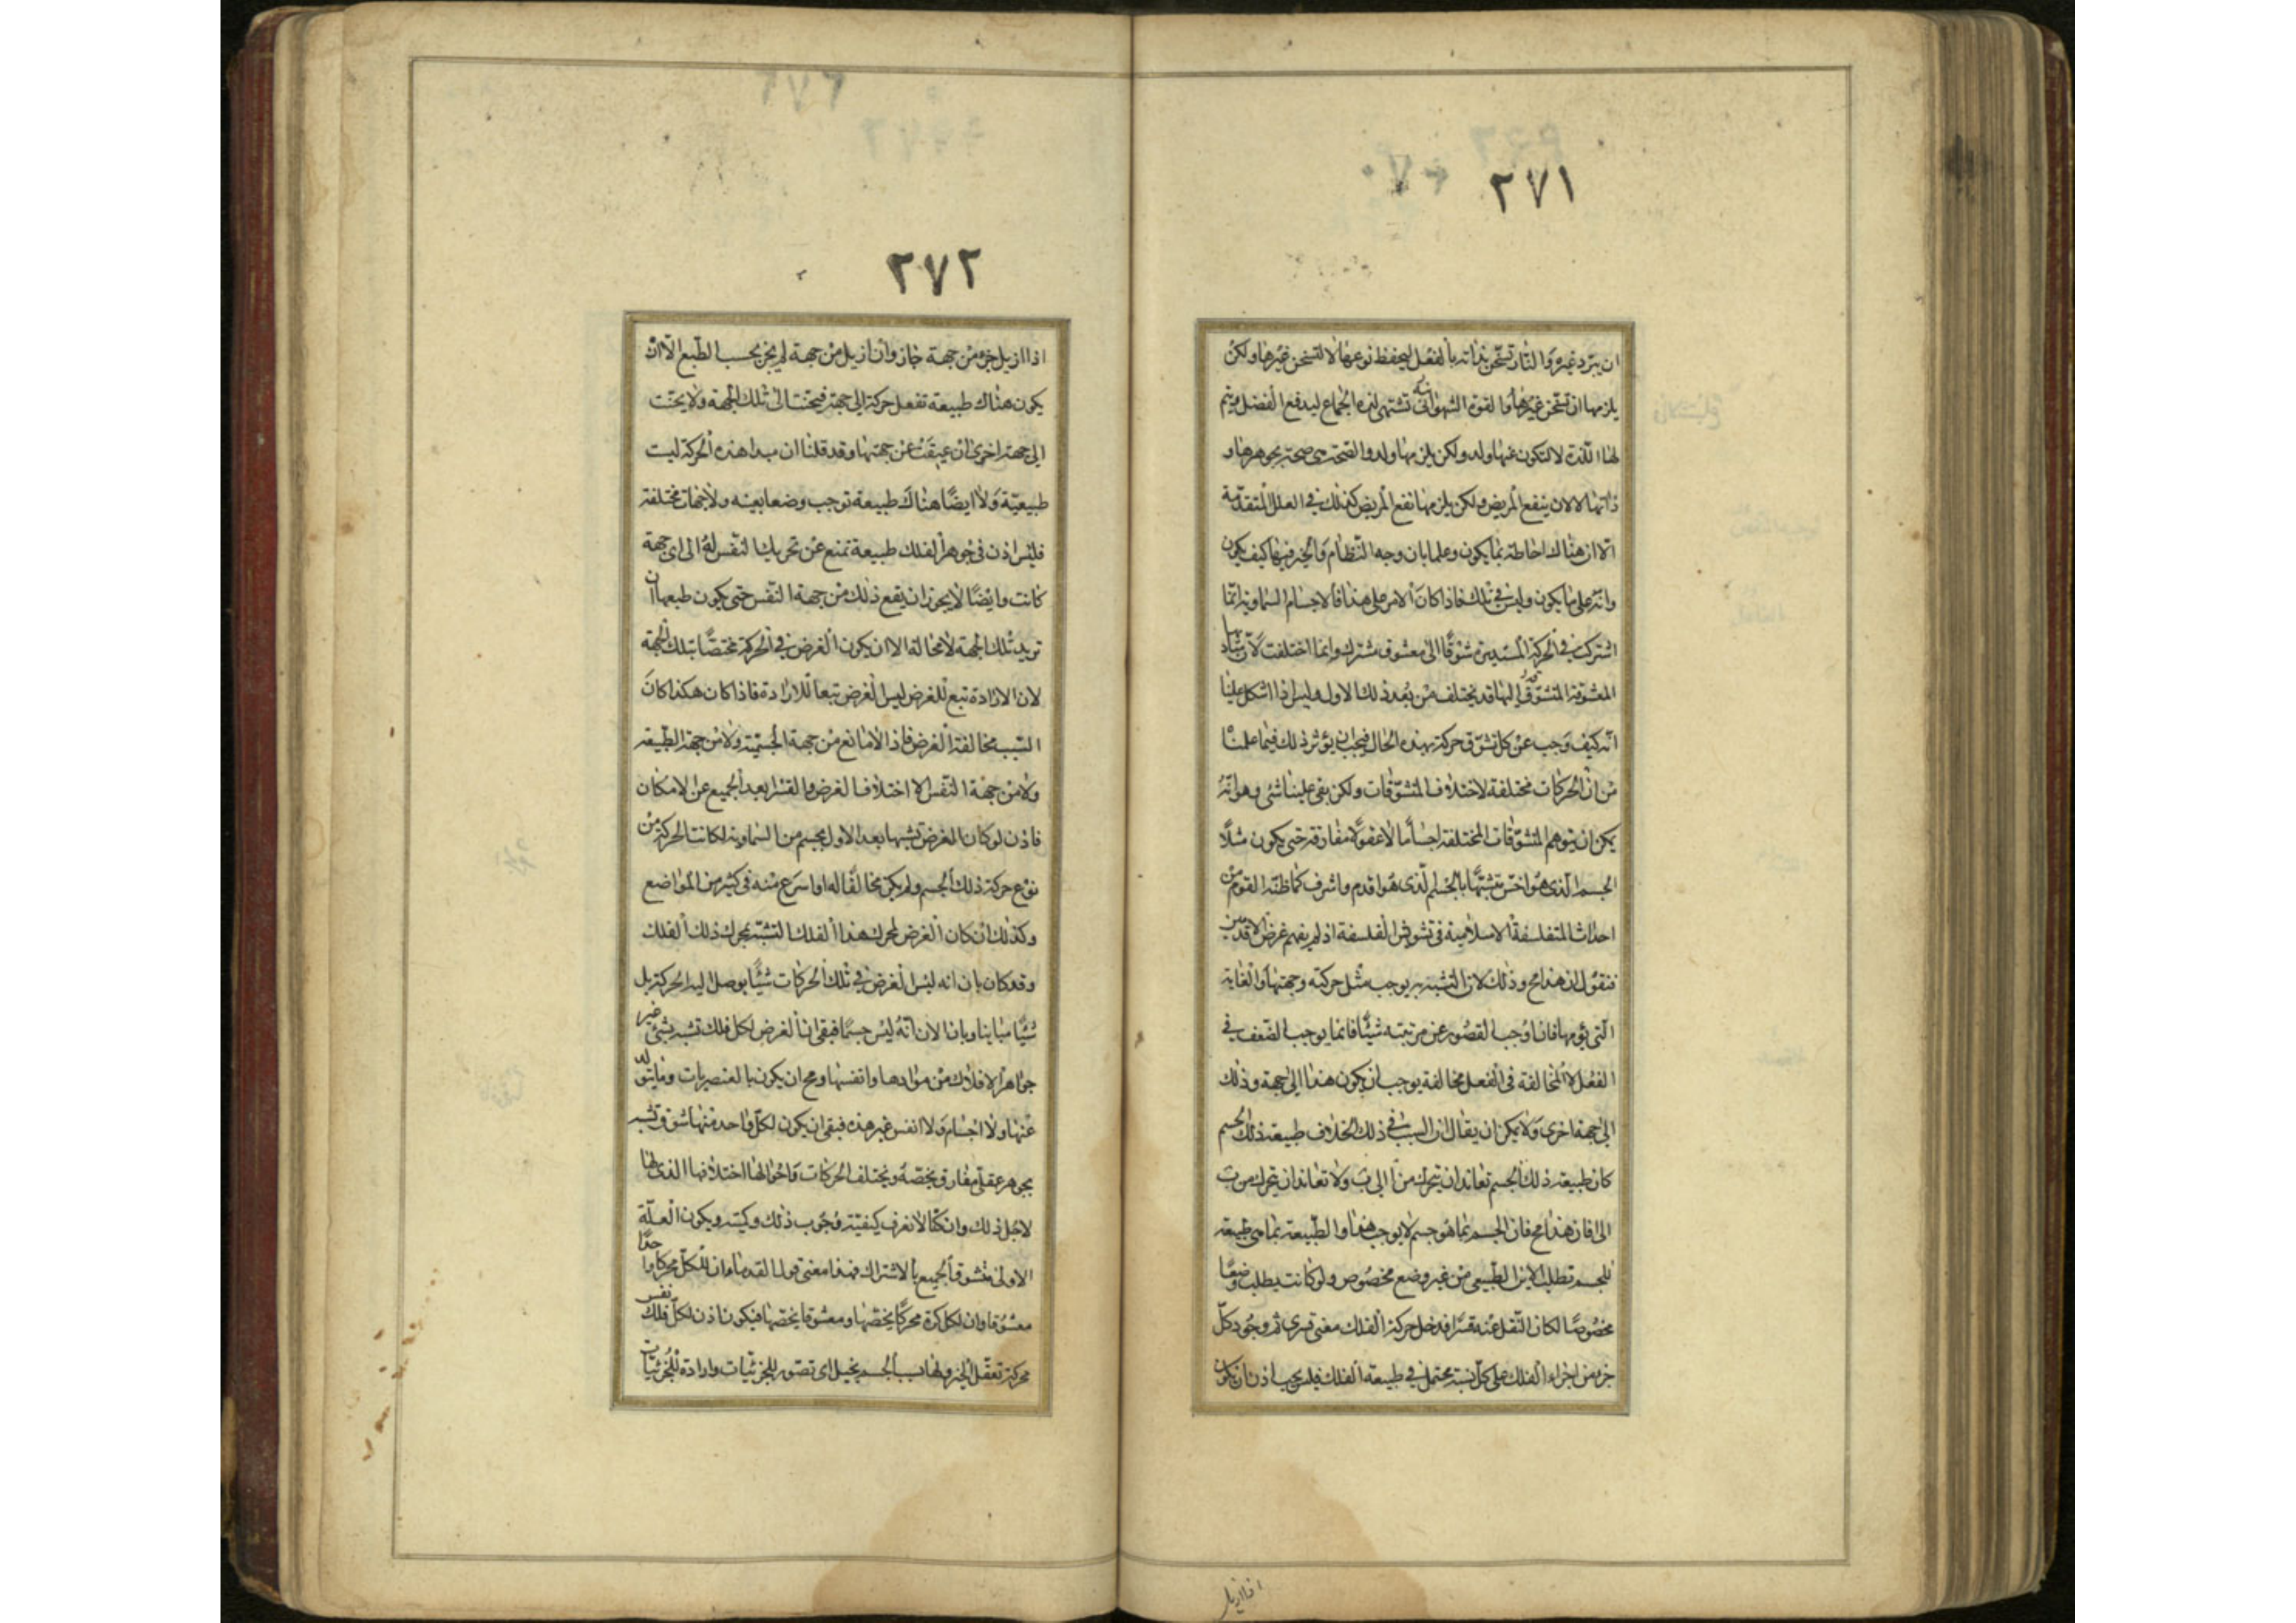 ٢٧١
ان يبرد غيره والنار تسخن بذاتها بالفعل ليحفظ نوعها لا لتسخن غيرها ولكن
يلزمها ان تسخن غيرها والقوة الشهوانية تشتهى لذة الجماع ليدفع الفضل ويتم
لها اللذة لا لتكون عنها ولد ولكن يلزمها ولد والصحة هى صحة بجوهرها و
ذاتها لا لان ينفع المريض ولكن يلزمها نفع المريض كذلك فى العلل المتقدمة
الا ان هناك احاطة بما يكون وعلما بان وجه النظام والخير فيها كيف يكون
وانه على ما يكون وليس فى تلك فاذا كان الامر على هذا فالاجسام السماوية انما
اشتركت فى الحركة المستديرة شوقا الى معشوق مشترك وانما اختلفت لان مباديها
المعشوقة المتشوق اليها قد يختلف من بعد ذلك الاول وليس اذا اشكل علينا
انه كيف وجب عن كل تشوق حركة بهذه الحال فيجب ان يؤثر ذلك فيما علمنا
من ان الحركات مختلفة لاختلاف المتشوقات ولكن بقى علينا شئ وهو انه
يمكن ان يتوهم المتشوقات المختلفة اجساما لا عقولا مفارقة حتى يكون مثلا
الجسم الذى هو اخس متشبها بالجسم الذى هو اقدم واشرف كما ظنه القوم من
احداث المتفلسفة الاسلامية فى تشويش الفلسفة اذ لم يفهم غرض الاقدمين
فنقول ان هذا مح وذلك لان التشبه به يوجب مثل حركته وجهتها والغاية
التى يؤمها فان اوجب القصور عن مرتبته شيئا فانما يوجب الضعف فى
الفعل لا المخالفة فى الفعل مخالفة يوجب ان يكون هذا الى جهة وذلك
الى جهة اخرى ولا يمكن ان يقال ان السبب فى ذلك الخلاف طبيعة ذلك الجسم
كان طبيعة ذلك الجسم تعاند ان يتحرك من ا الى ب ولا تعاند ان يتحرك من ب
الى ا فان هذا مح فان الجسم بما هو جسم لا يوجب هذا والطبيعة بما هى طبيعة
للجسم تطلب الاين الطبيعى من غير وضع مخصوص ولو كانت يطلب وضعا
مخصوصا لكان النقل عنه قسرا فدخل حركة الفلك معنى قسرى ثم وجود كل
جزء من اجزاء الفلك على كل نسبة محتمل فى طبيعة الفلك فليس يجب اذن ان يكون
اذا ازيل
٢٧٢
اذا ازيل جزء من جهة جاز وان ازيل من جهة لم يجز بحسب الطبع الا ان
يكون هناك طبيعة تفعل حركة الى جهة فيحنت الى تلك الجهة ولا يحنت
الى جهة اخرى ان عيقت عن جهتها وقد قلنا ان مبدا هذه الحركة ليست
طبيعية ولا ايضا هناك طبيعة توجب وضعا بعينه ولا جهات مختلفة
فليس اذن فى جوهر الفلك طبيعة تمنع عن تحريك النفس له الى اى جهة
كانت وايضا لا يجوز ان يقع ذلك من جهة النفس حتى يكون طبعها ان
تريد تلك الجهة لا محالة الا ان يكون الغرض فى الحركة مختصا بتلك الجهة
لان الارادة تبع للغرض ليس الغرض تبعا للارادة فاذا كان هكذا كان
السبب مخالفة الغرض فاذا لا مانع من جهة الجسمية ولا من جهة الطبيعة
ولا من جهة النفس الا اختلاف الغرض والقسر ابعد الجميع عن الامكان
فاذن لو كان الغرض تشبها بعد الاول بجسم من السماوية لكانت الحركة من
نوع حركة ذلك الجسم ولم يكن مخالفا له او اسرع منه فى كثير من المواضع
وكذلك ان كان الغرض لمحرك هذا الفلك التشبه بمحرك ذلك الفلك
وقد كان بان انه ليس الغرض فى تلك الحركات شيئا يوصل اليه الحركة بل
شيئا مباينا وبان الان انه ليس جسما فبقى ان الغرض لكل فلك تشبه بشئ غير
جواهر الافلاك من موادها وانفسها ومح ان يكون بالعنصريات وما يتولد
عنها ولا اجسام ولا انفس غير هذه فبقى ان يكون لكل واحد منها شوق تشبه
بجوهر عقلى مفارق يخصه ويختلف الحركات واحوالها اختلافها الذى لها
لاجل ذلك وان كنا لا نعرف كيفية وجوب ذلك وكميته ويكون العلة
الاولى متشوق الجميع بالاشتراك فهذا معنى قول القدماء ان للكل محركا واحدا
معشوقا وان لكل كرة محركا يخصها ومعشوقا يخصها فيكون اذن لكل فلك نفس
محركة تعقل الخير ولها بسبب الجسم تخيل اى تصور للجزئيات وارادة للجزئيات